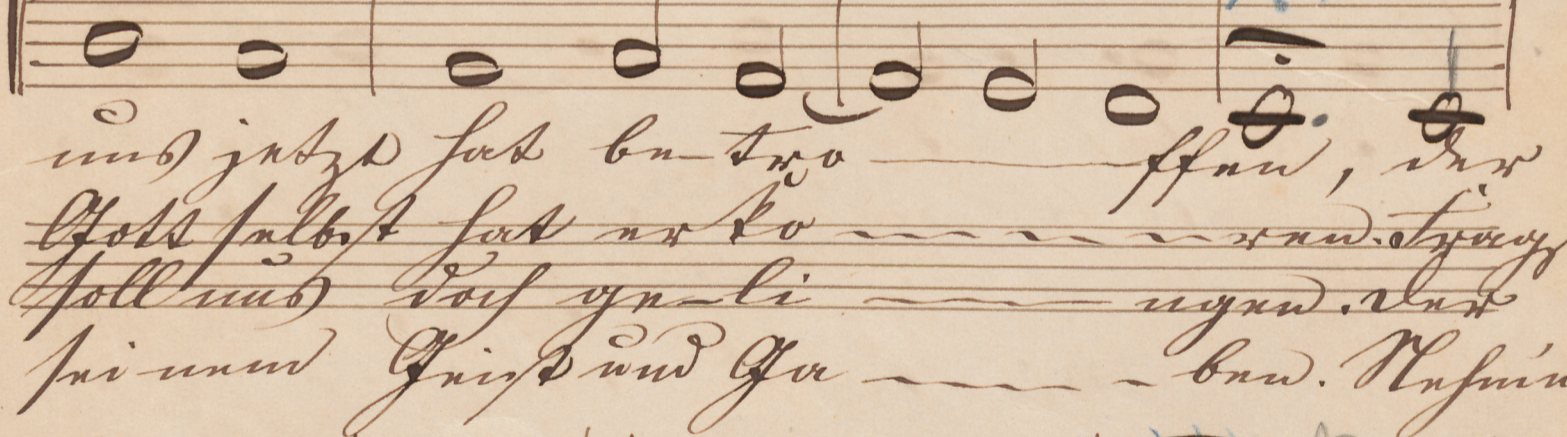 uns jetzt hat be-tro———ffen, der
Gott selbst hat erko - - - - - ren. Frags
soll uns doch ge-li - - - - ngen. Der
seinem Geist und Ga - - - - ben. Nehm'n